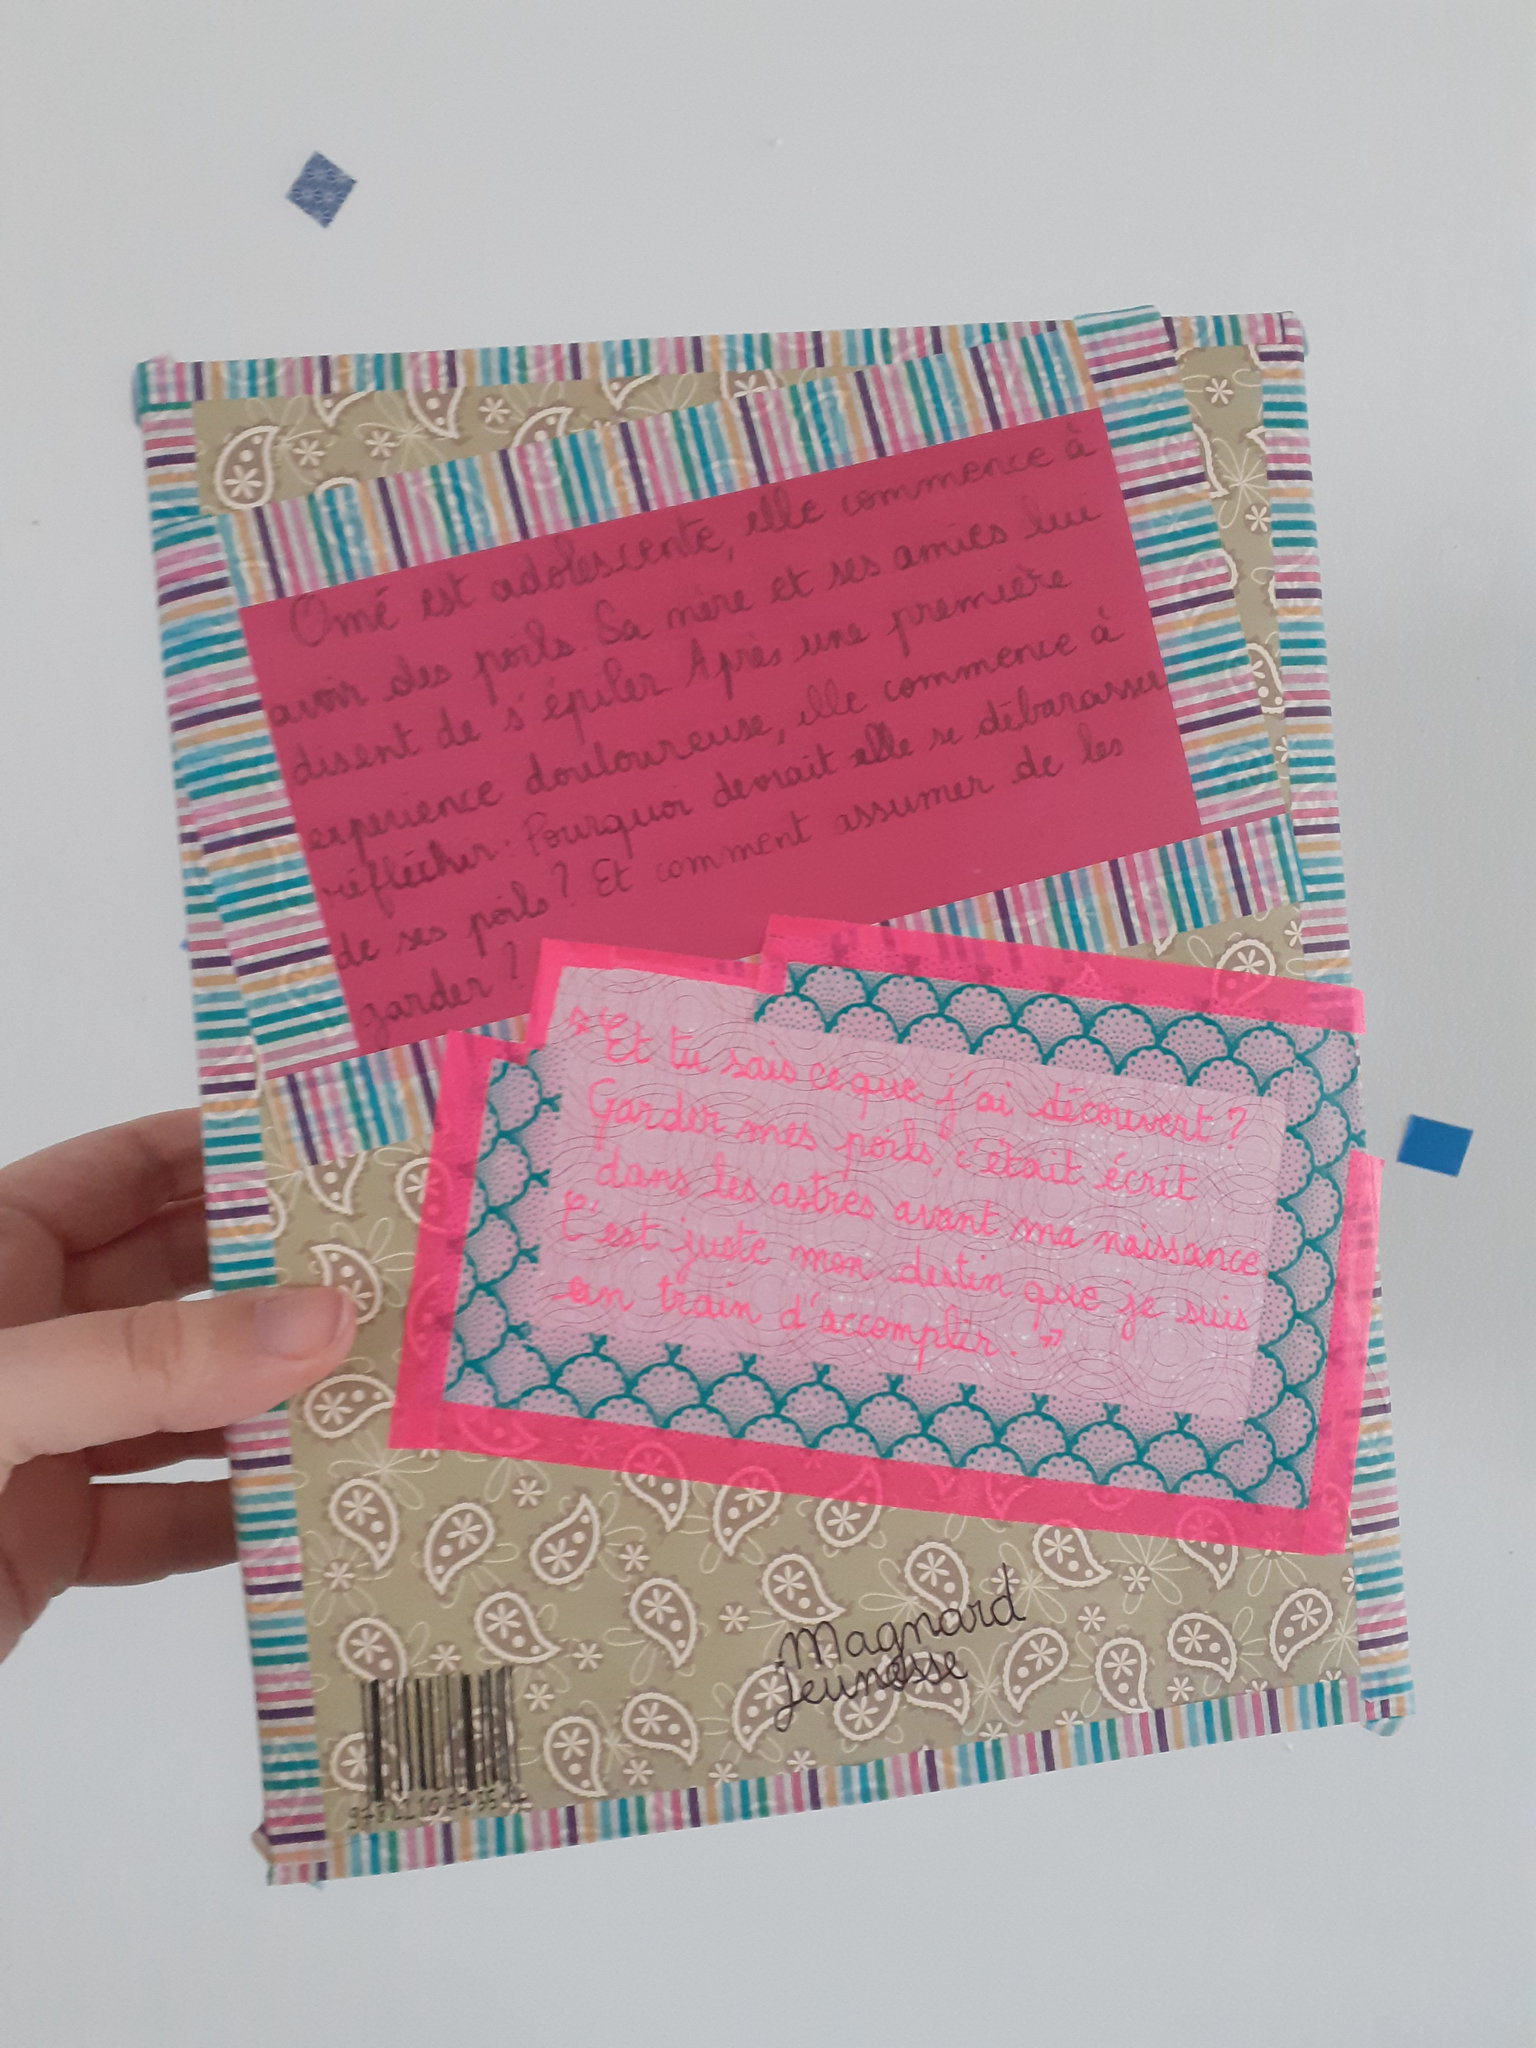 Omé est adolescente, elle commence à
avoir des poils. Sa mère et ses amies lui
disent de s'épiler. Après une première
experience douloureuse, elle commence à
réfléchir. Pourquoi devrait elle se débarasser
de ses poils ? Et comment assumer de les
garder ?
« Et tu sais ce que j'ai découvert ?
Garder mes poils, c'était écrit
dans les astres avant ma naissance
C'est juste mon destin que je suis
en train d'accomplir. »
Magnard
jeunesse